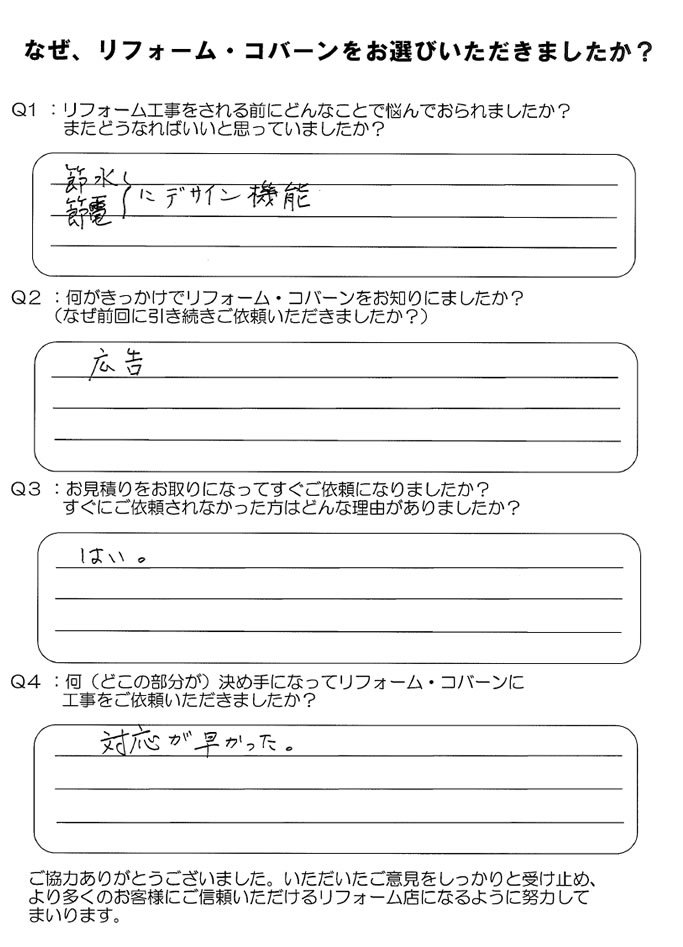 なぜ、リフォーム・コバーンをお選びいただきましたか？
Q1 ：リフォーム工事をされる前にどんなことで悩んでおられましたか？
またどうなればいいと思っていましたか？
節水
節電
にデザイン機能
Q2 ：何がきっかけでリフォーム・コバーンをお知りにましたか？
（なぜ前回に引き続きご依頼いただきましたか？）
広告
Q3 ：お見積りをお取りになってすぐご依頼になりましたか？
すぐにご依頼されなかった方はどんな理由がありましたか？
はい。
Q4 ：何（どこの部分が）決め手になってリフォーム・コバーンに
工事をご依頼いただきましたか？
対応が早かった。
ご協力ありがとうございました。いただいたご意見をしっかりと受け止め、
より多くのお客様にご信頼いただけるリフォーム店になるように努力して
まいります。